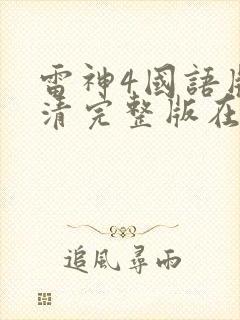 雷神4國語
清完整版在
追風尋雨